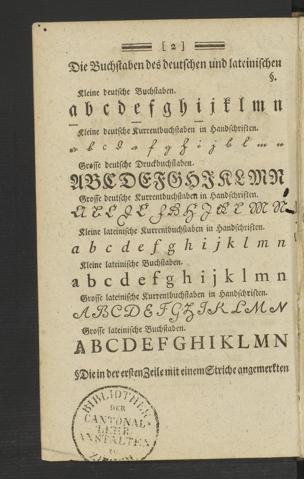 [ 2 ]
Die Buchstaben des deutschen und lateinischen
§.
Kleine deutsche Buchstaben.
a b c d e f g h i j k l m n
Kleine deutsche Kurrentbuchstaben in Handschriften.
a b c d e f g h i j k l m n
Grosse deutsche Druckbuchstaben.
A B C D E F G H I K L M N
Grosse deutsche Kurrentbuchstaben in Handschriften.
A B C D E F G H I K L M N
Kleine lateinische Kurrentbuchstaben in Handschriften.
a b c d e f g h i j k l m n
Kleine lateinische Buchstaben.
a b c d e f g h i j k l m n
Grosse lateinische Kurrentbuchstaben in Handschriften.
A B C D E F G H I K L M N
Grosse lateinische Buchstaben.
A B C D E F G H I K L M N
§ Die in der ersten Zeile mit einem Striche angemerkten
BIBLIOTHEK
DER
CANTONAL-
LEHR-
ANSTALTEN